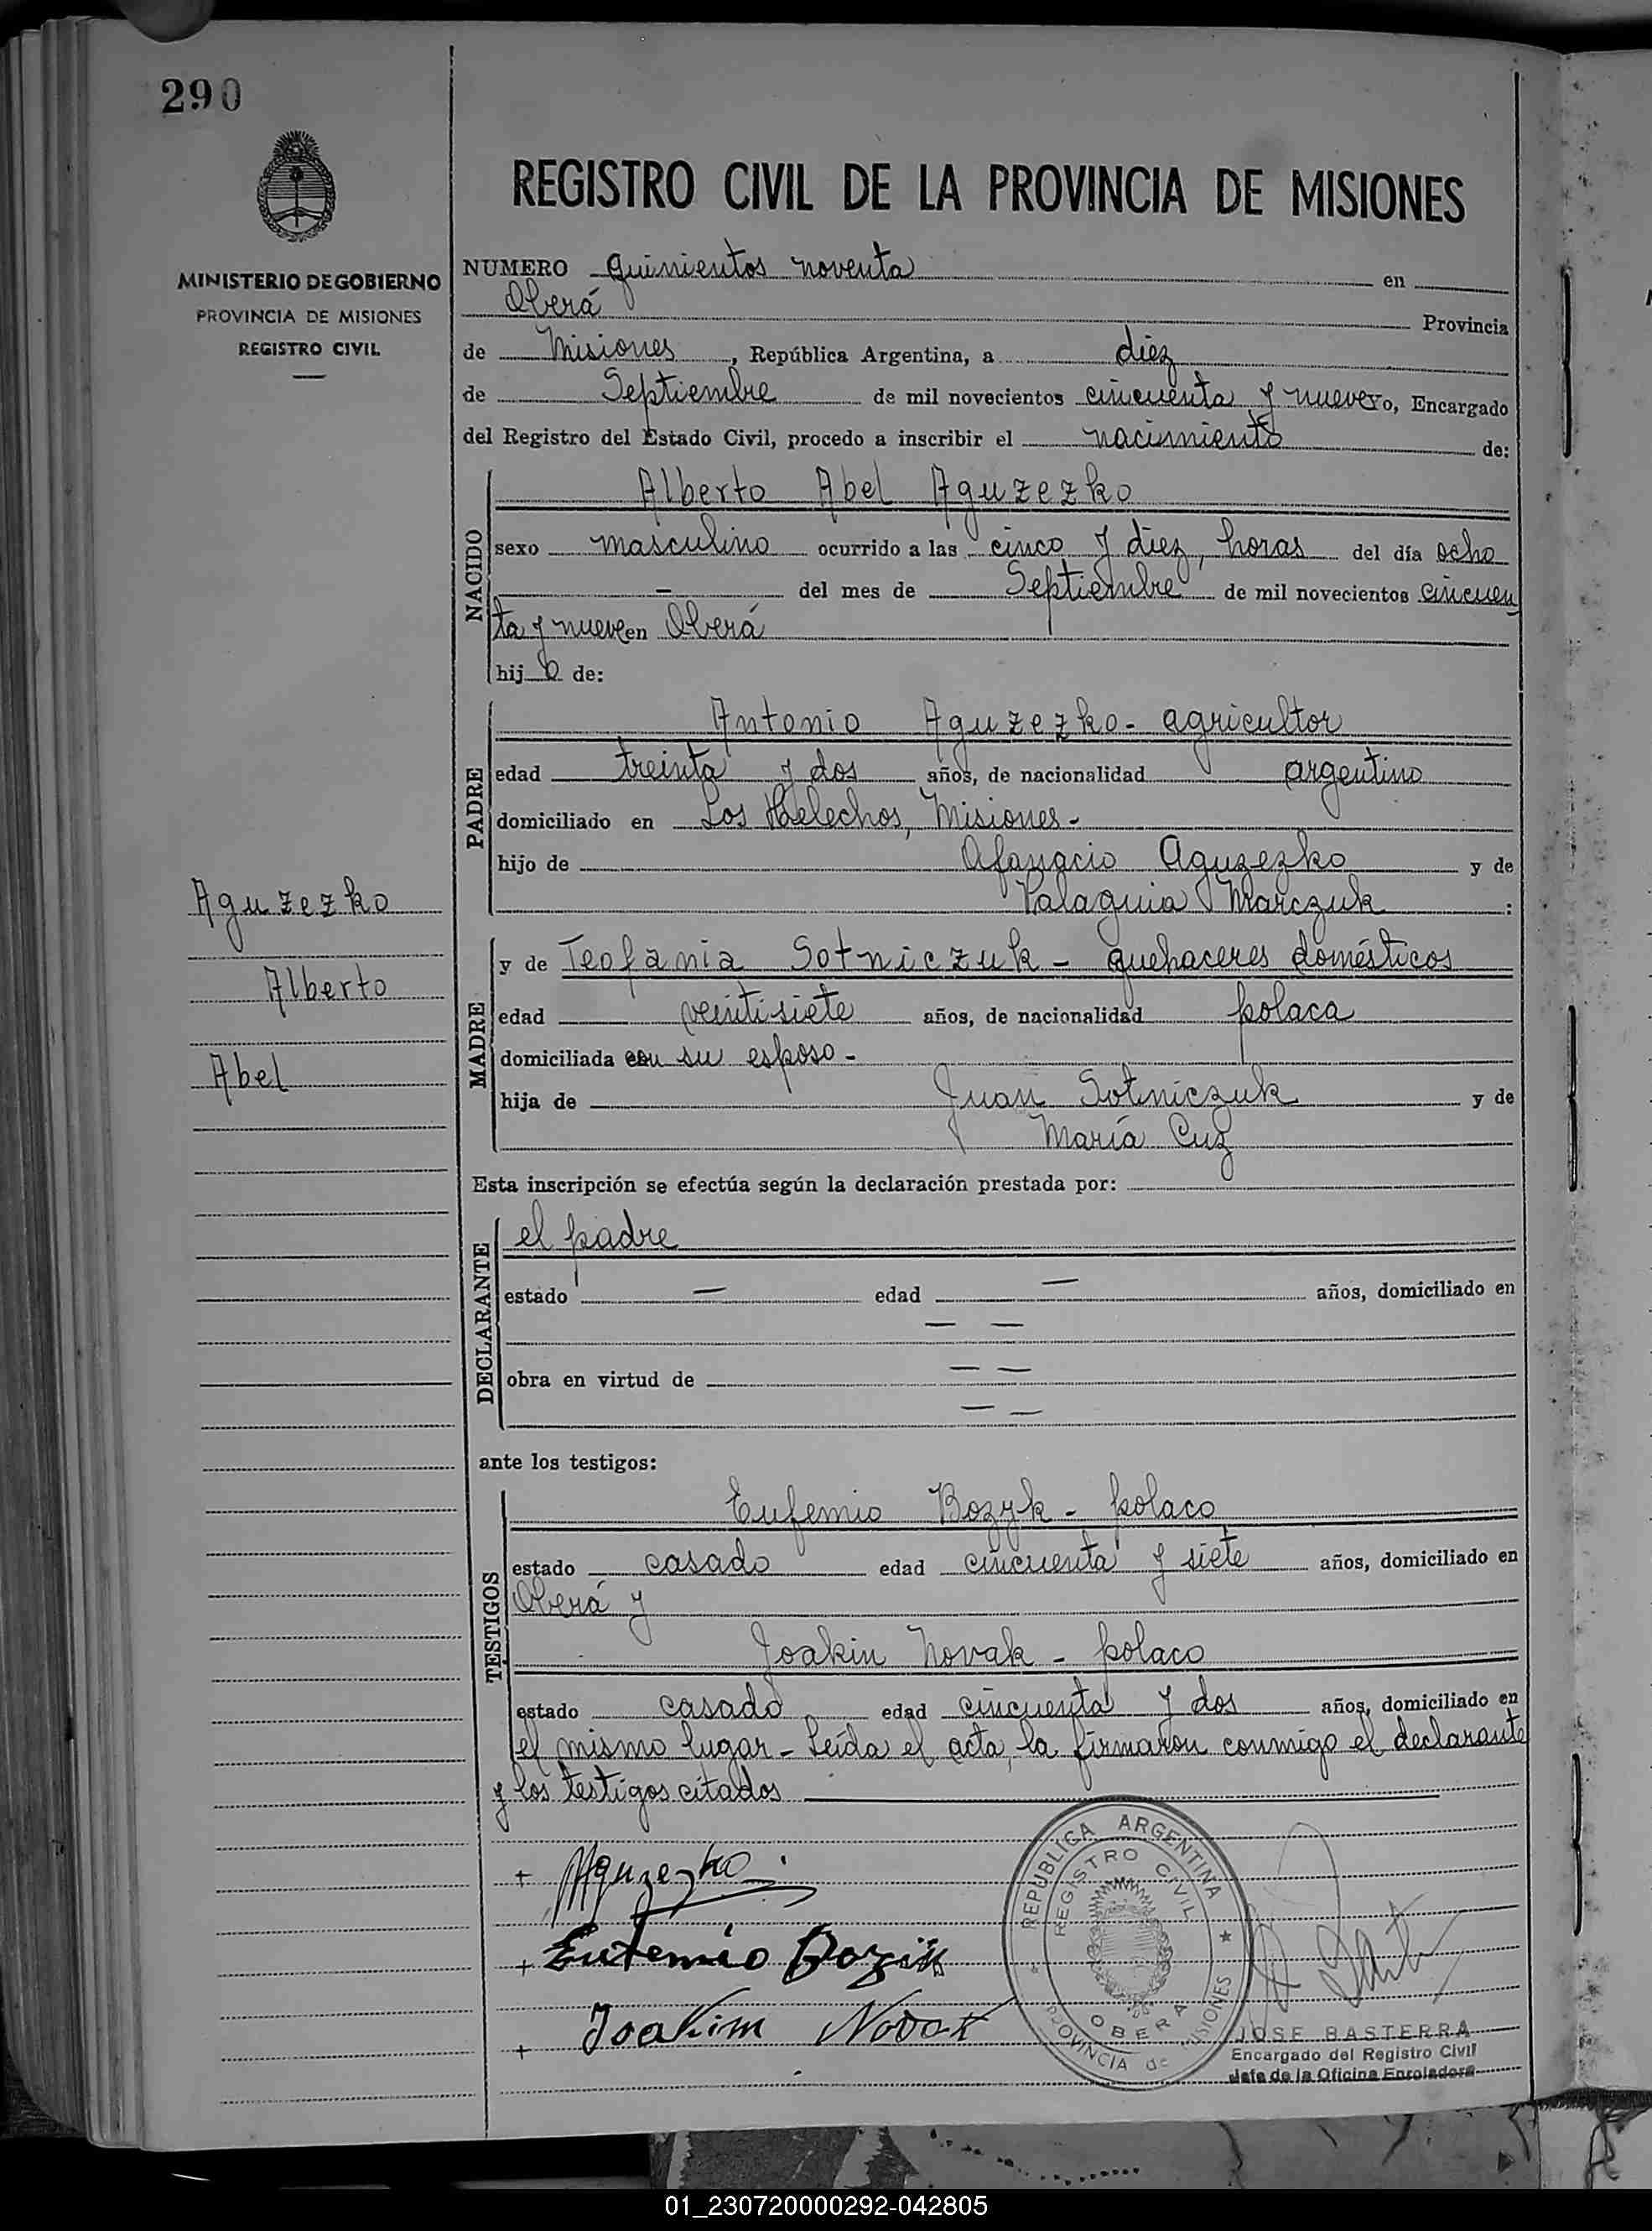 290
MINISTERIO DE GOBIERNO
PROVINCIA DE MISIONES
REGISTRO CIVIL
REGISTRO CIVIL DE LA PROVINCIA DE MISIONES
NUMERO Quinientos noventa en
Oberá Provincia
de Misiones, República Argentina, a diez
de Septiembre de mil novecientos cincuenta y nueve yo, Encargado
del Registro del Estado Civil, procedo a inscribir el nacimiento de:
NACIDO
Alberto Abel Aguzezko
sexo masculino ocurrido a las cinco y diez, horas del día ocho
— del mes de Septiembre de mil novecientos cincuen
ta y nueve en Oberá
hij o de:
PADRE
Antonio Aguzezko - agricultor
edad treinta y dos años, de nacionalidad argentino
domiciliado en Los Helechos, Misiones -
hijo de Afanacio Aguzezko y de
Palaguia Marczuk :
Aguzezko
Alberto
Abel
MADRE
y de Teofania Sotniczuk - quehaceres domésticos
edad veintisiete años, de nacionalidad polaca
domiciliada con su esposo -
hija de Juan Sotniczuk y de
María Cuz
Esta inscripción se efectúa según la declaración prestada por:
DECLARANTE
el padre
estado — edad — años, domiciliado en
— —
obra en virtud de — —
— —
ante los testigos:
TESTIGOS
Eufemio Bozyk - polaco
estado casado edad cincuenta y siete años, domiciliado en
Oberá y
Joakin Novak - polaco
estado casado edad cincuenta y dos años, domiciliado en
el mismo lugar - Leída el acta, la firmaron conmigo el declarante
y los testigos citados
+ Aguzezko
+ Eutemio Bozik
+ Joakim Novak
REPUBLICA ARGENTINA
REGISTRO CIVIL
OBERA
PROVINCIA de MISIONES
JOSE BASTERRA
Encargado del Registro Civil
Jefe de la Oficina Enroladora
01_230720000292-042805